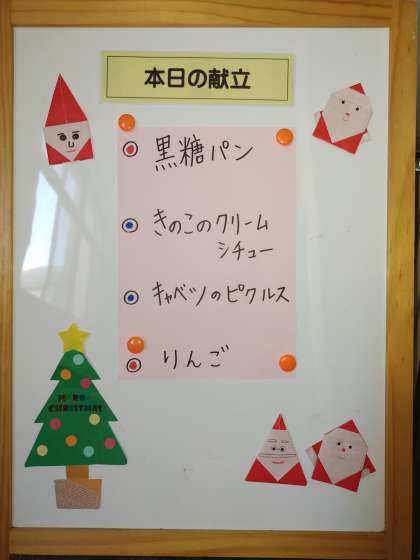 本日の献立
黒糖パン
きのこのクリーム
シチュー
キャベツのピクルス
りんご
CHRISTMAS